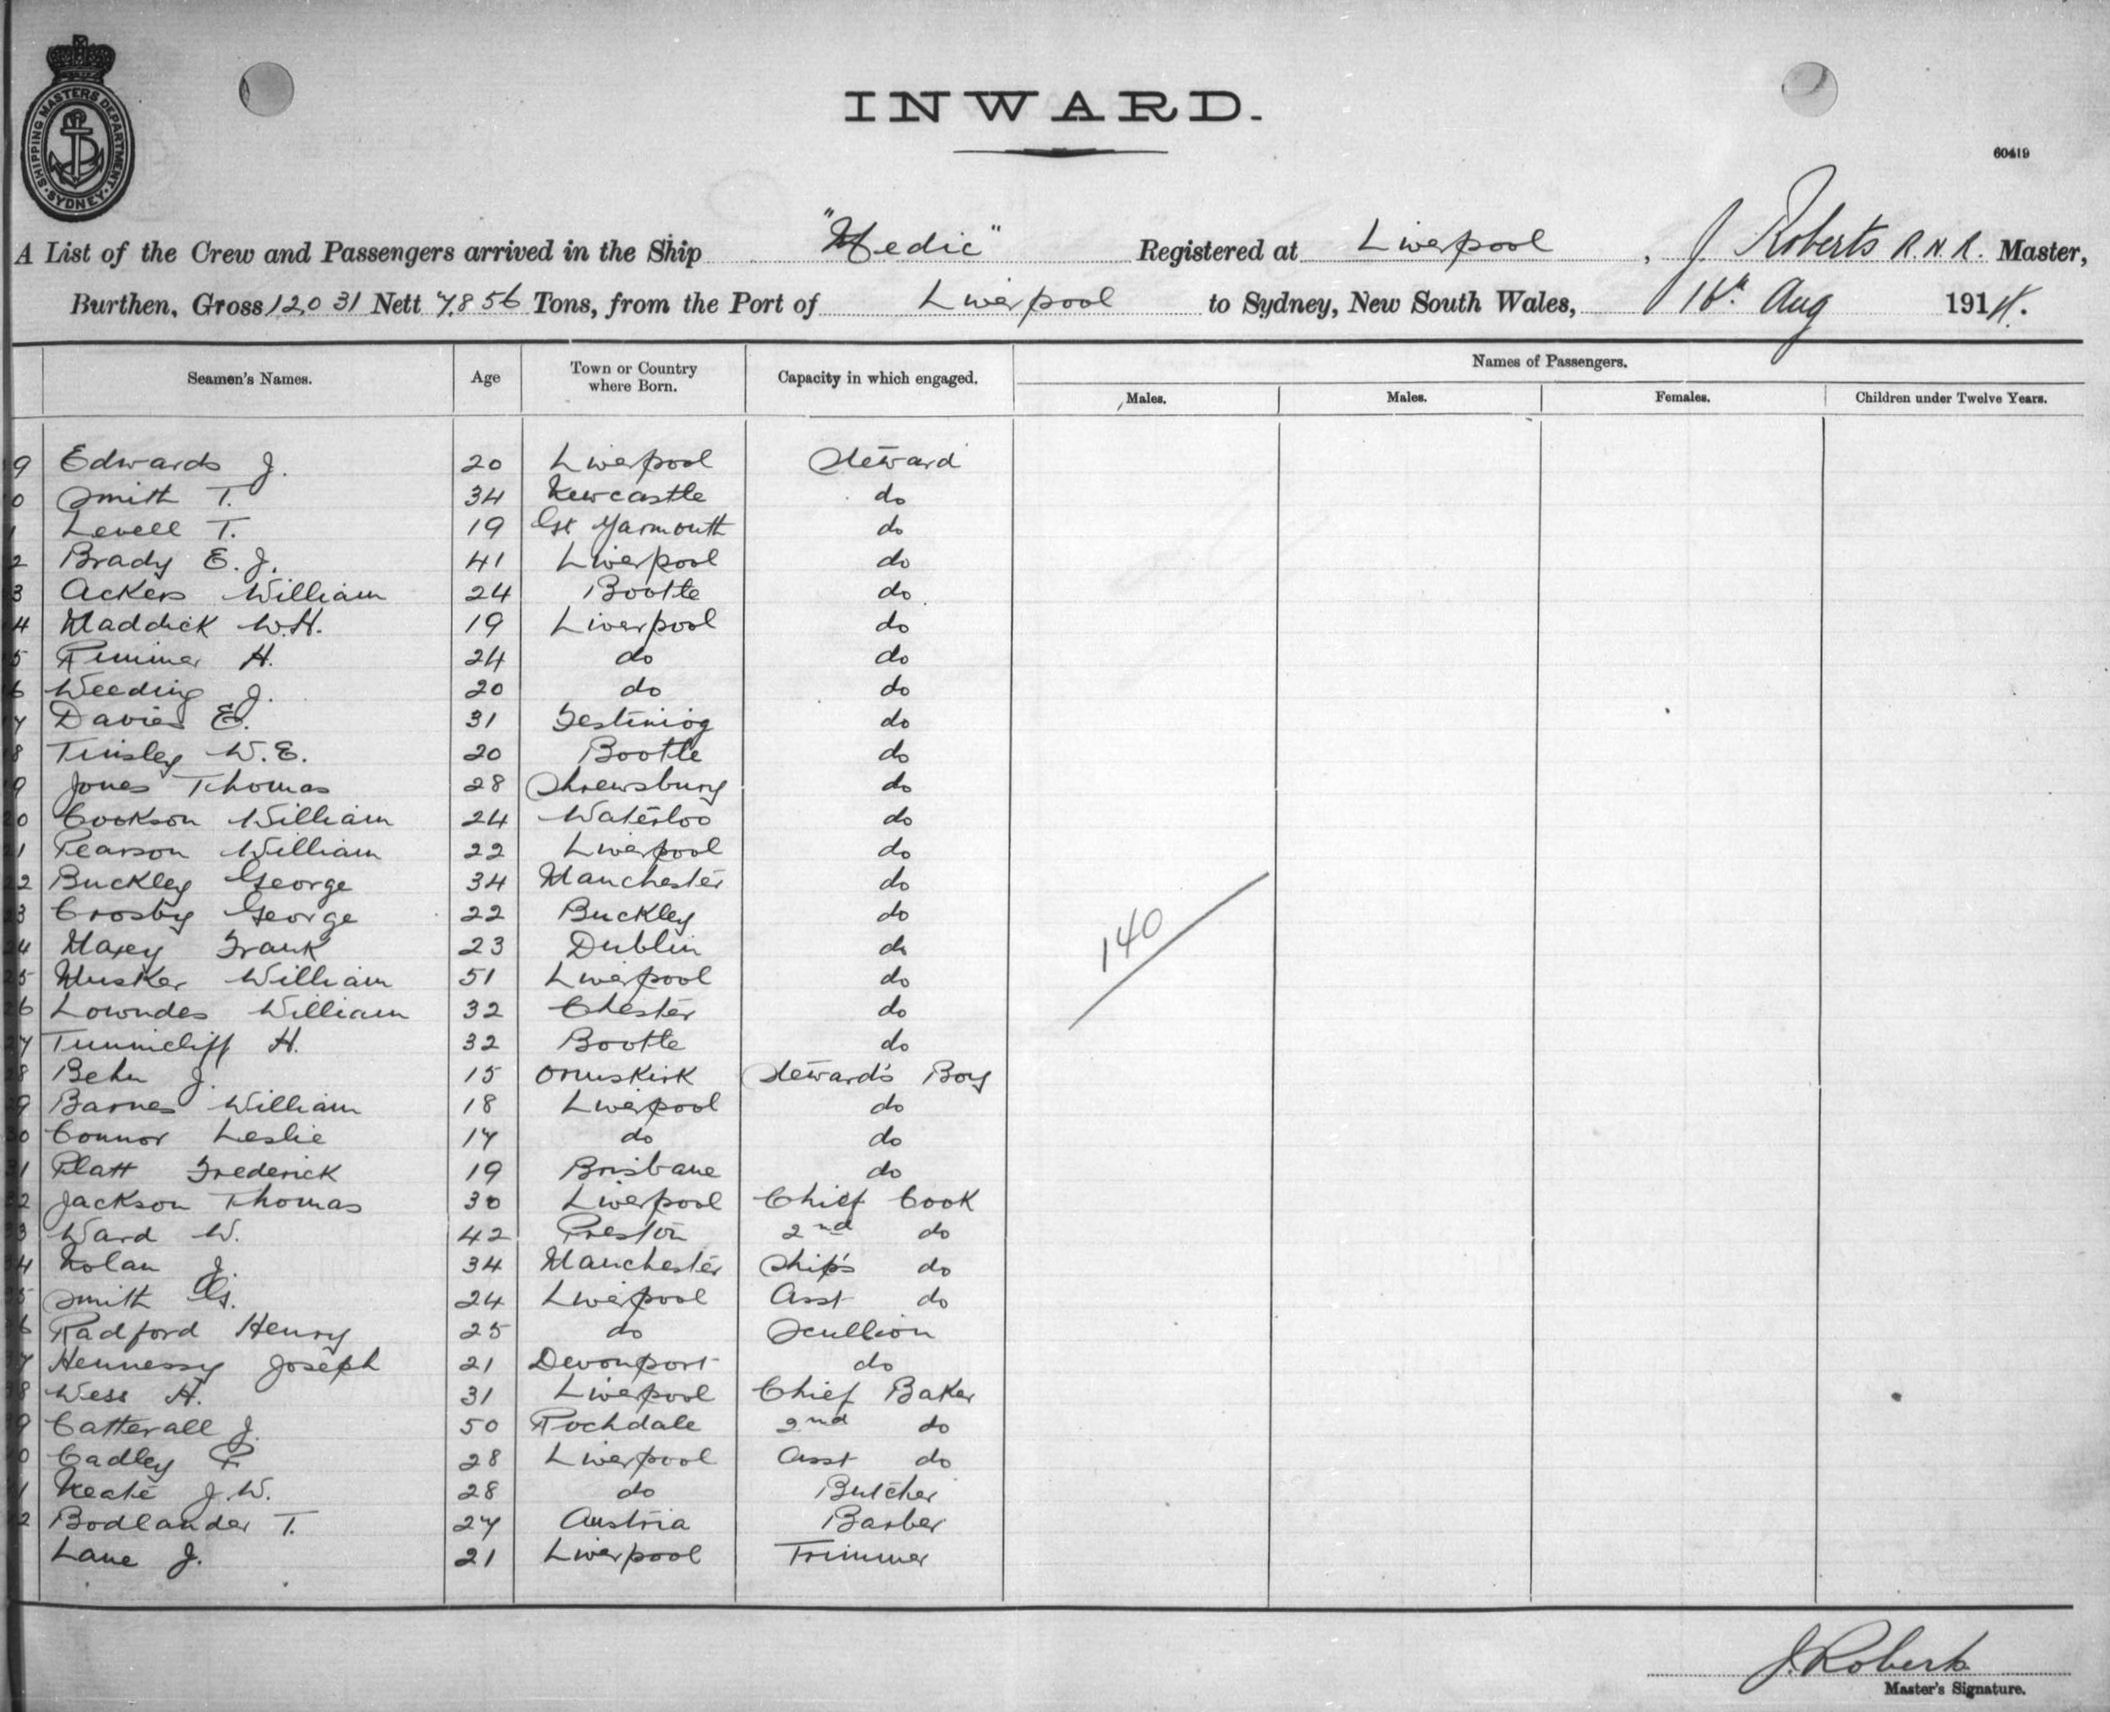 SHIPPING MASTERS DEPARTMENT · SYDNEY ·
INWARD.
60419
A List of the Crew and Passengers arrived in the Ship "Medic" Registered at Liverpool, J. Roberts R.N.R. Master,
Burthen, Gross 12,031 Nett 7,856 Tons, from the Port of Liverpool to Sydney, New South Wales, Aug 191
Names of Passengers.
Seamen's Names. Age Town or Country where Born. Capacity in which engaged. Males. Males. Females. Children under Twelve Years.
9 Edwards J. 20 Liverpool Steward
0 Smith T. 34 Newcastle do
1 Levell T. 19 Gt Yarmouth do
2 Brady E. J. 41 Liverpool do
3 Ackers William 24 Bootle do
4 Maddick W.H. 19 Liverpool do
5 Rimmer H. 24 do do
6 Weeding J. 20 do do
17 Davies E. 31 Festiniog do
18 Tinsley W. E. 20 Bootle do
19 Jones Thomas 28 Shrewsbury do
20 Cookson William 24 Waterloo do
21 Pearson William 22 Liverpool do
22 Buckley George 34 Manchester do
23 Crosby George 22 Buckley do
24 Maxey Frank 23 Dublin do
25 Musker William 51 Liverpool do
26 Lowndes William 32 Chester do
27 Tunnicliff H. 32 Bootle do
28 Behn J. 15 Ormskirk Steward's Boy
29 Barnes William 18 Liverpool do
30 Connor Leslie 17 do do
31 Platt Frederick 19 Brisbane do
32 Jackson Thomas 30 Liverpool Chief Cook
33 Ward W. 42 Preston 2nd do
34 Nolan J. 34 Manchester Ship's do
35 Smith G. 24 Liverpool Asst do
36 Radford Henry 25 do Scullion
37 Hennessy Joseph 21 Devonport do
38 Wess H. 31 Liverpool Chief Baker
39 Catterall J. 50 Rochdale 2nd do
40 Cadley P. 28 Liverpool Asst do
41 Neate J.W. 28 do Butcher
42 Bodlander T. 27 Austria Barber
Lane J. 21 Liverpool Trimmer
140
J. Roberts
Master's Signature.